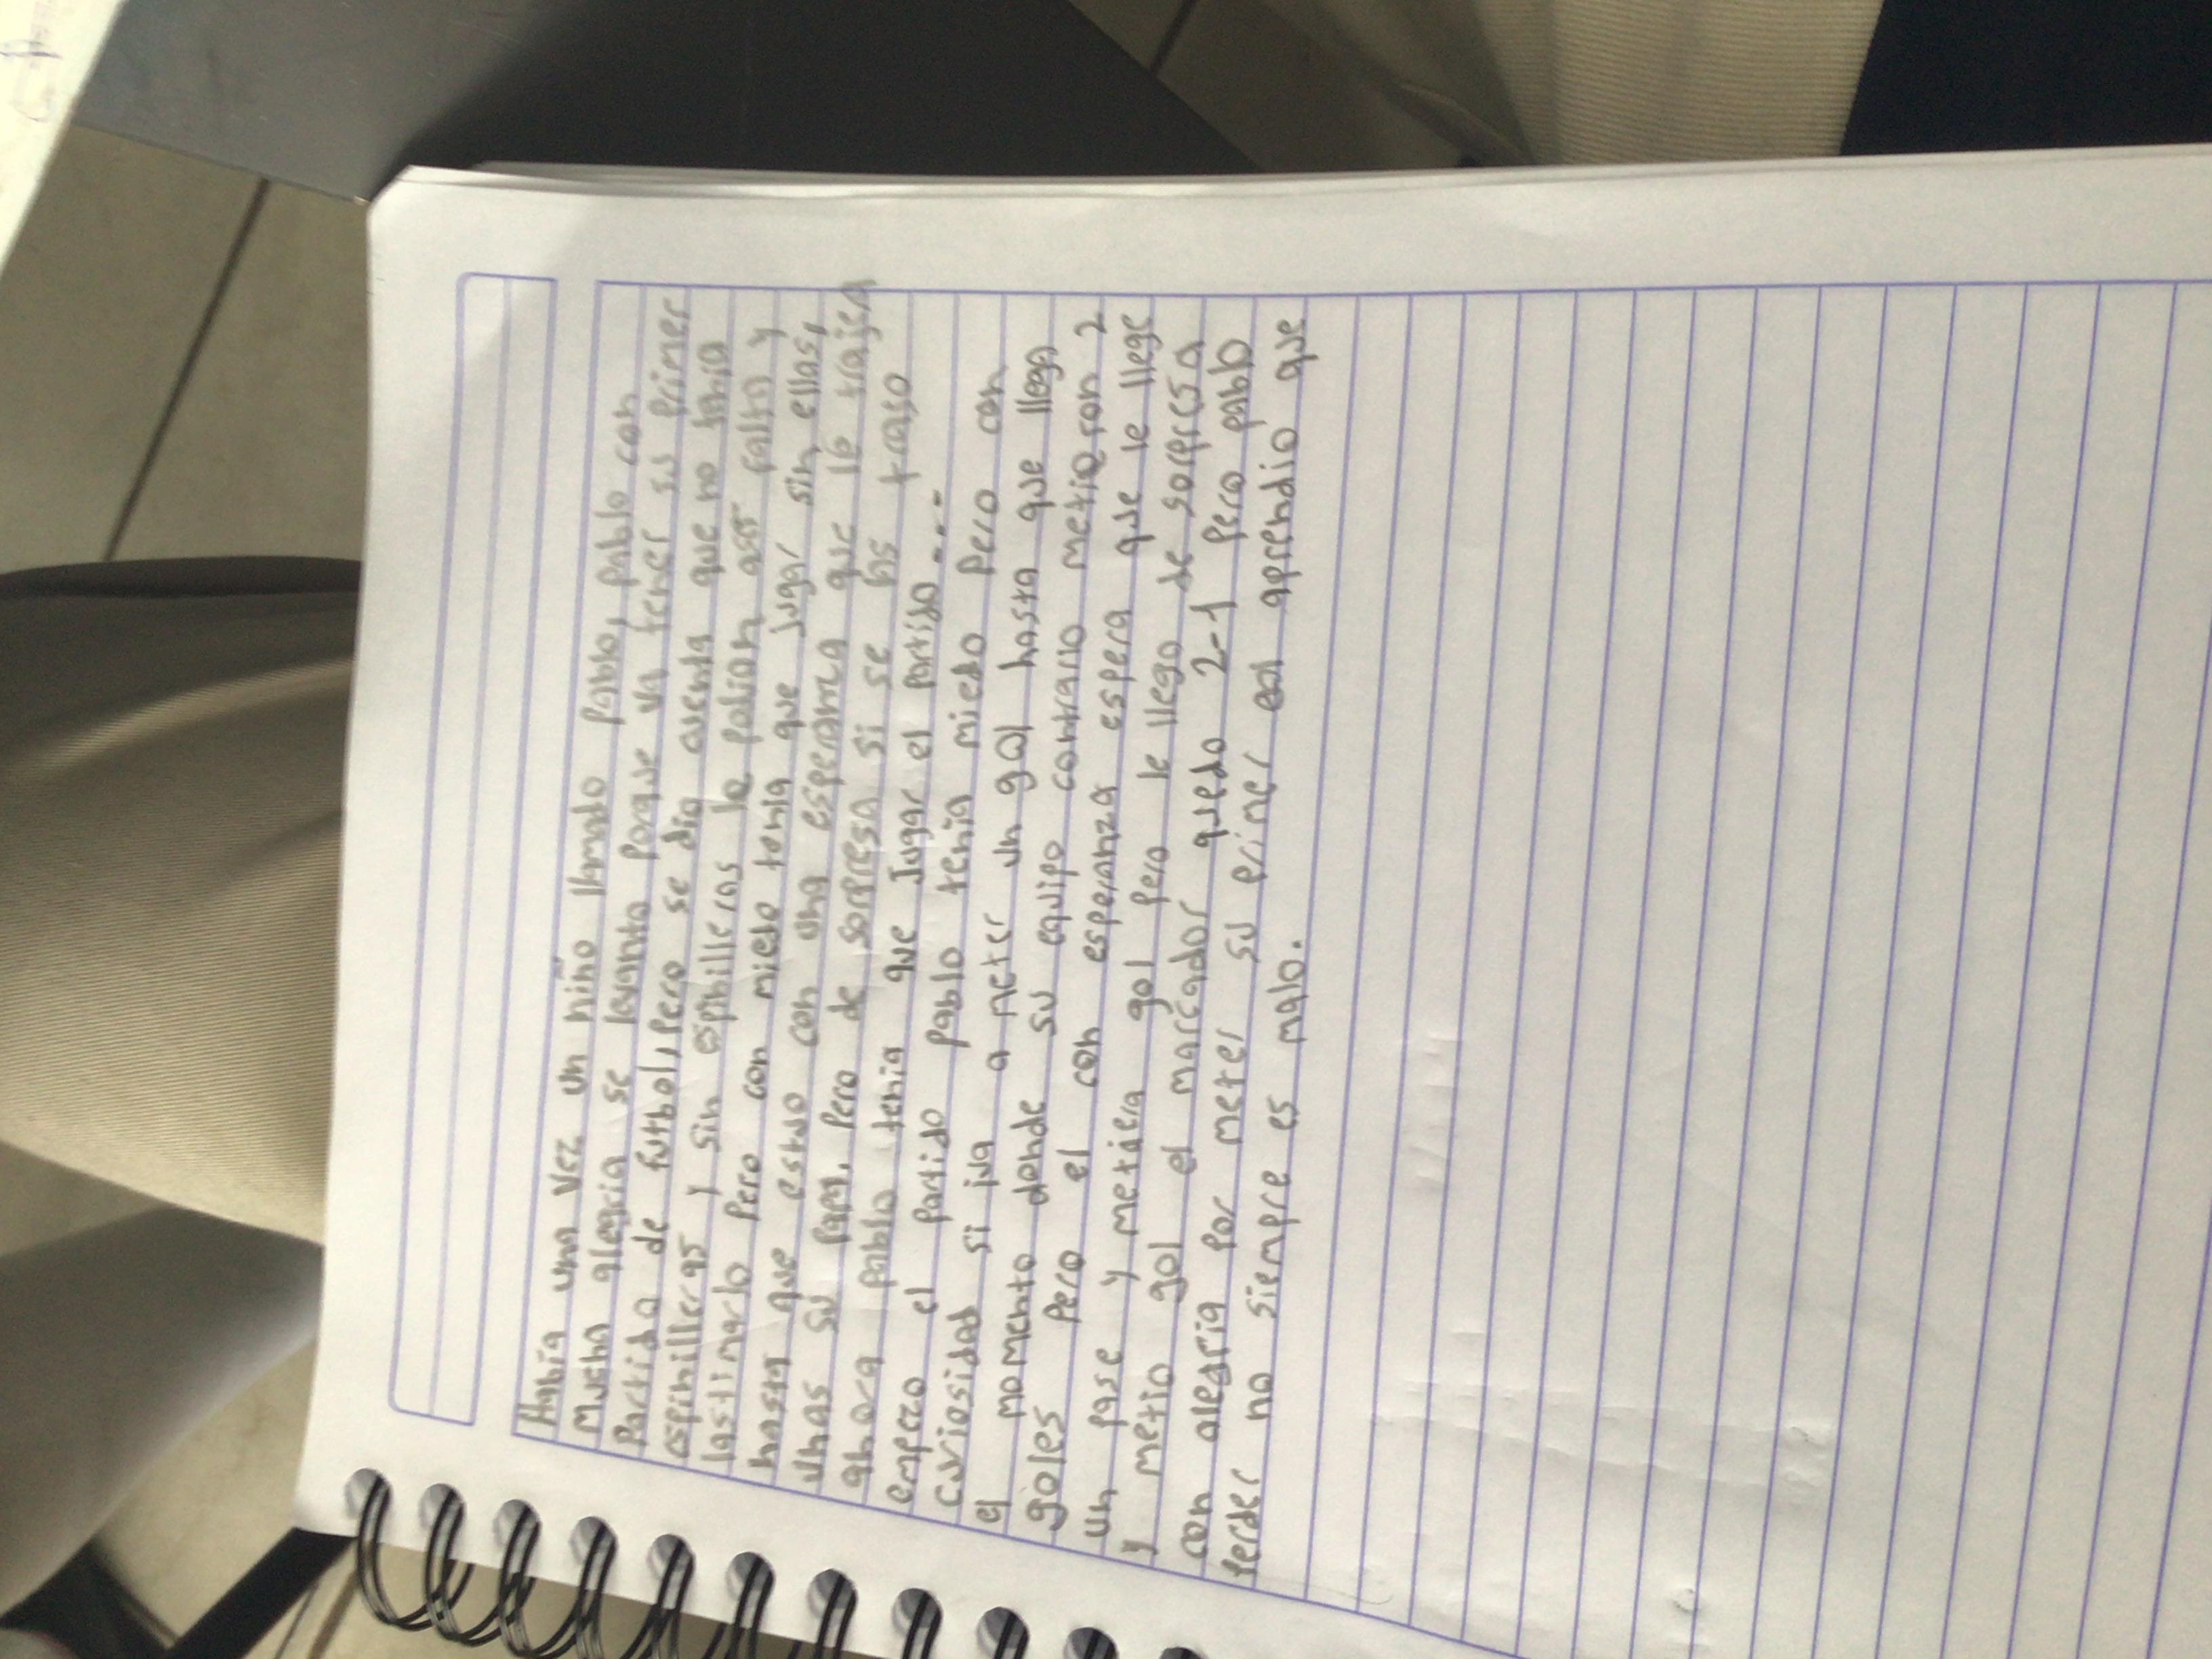 Había una vez un niño llamado pablo, pablo con
mucha alegria se levanto porque va tener su primer
partido de futbol, pero se dio cuenta que no tenia
espinilleras y sin espinilleras le podian aser falta y
lastimarlo pero con miedo tenia que jugar sin ellas,
hasta que estuvo con una esperanza que le trajera
unas su papa. pero de sorpresa si se las trajo
ahora pablo tenia que jugar el partido....
empezo el partido pablo tenia miedo pero con
curiosidad si iva a meter un gol hasta que llego
el momento donde su equipo contrario metieron 2
goles pero el con esperanza espera que le llege
un pase y metiera gol pero le llego de sorpresa
y metio gol el marcador quedo 2-1 pero pablo
con alegria por meter su primer gol aprendio que
perder no siempre es malo.